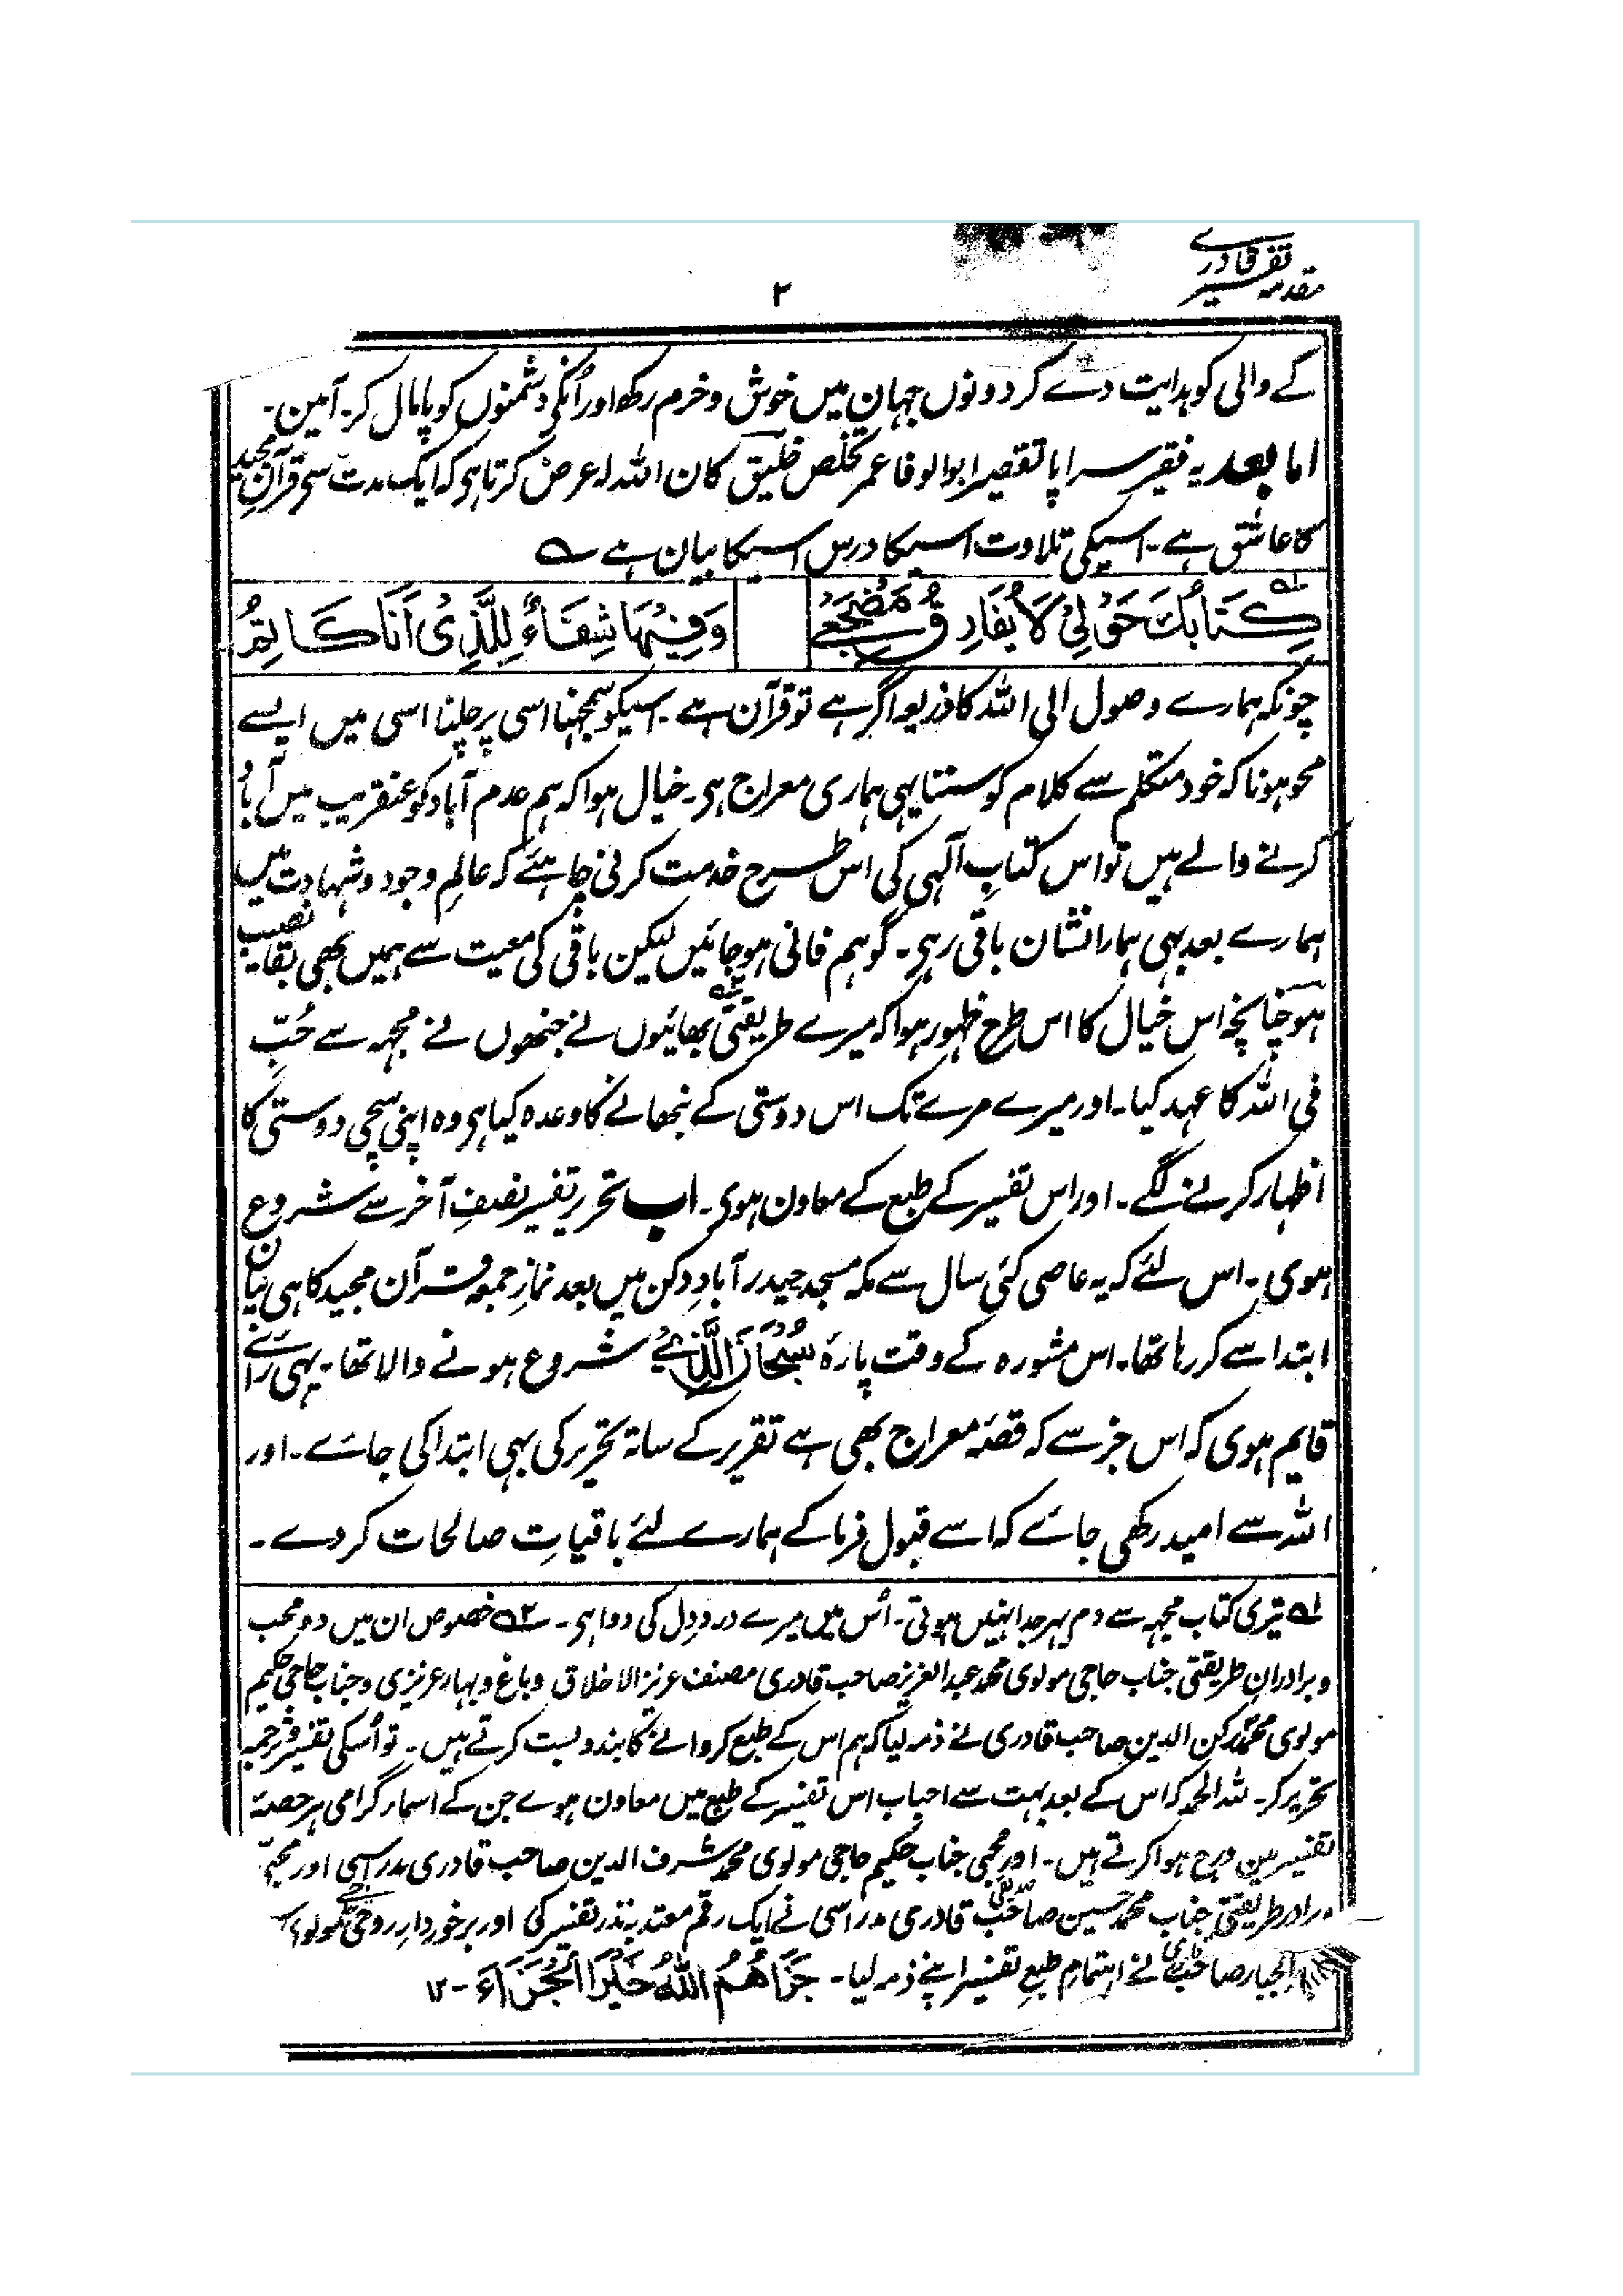 مقدمہ تفسیر قادری
۲
کے والی کو ہدایت دے کر دونوں جہان میں خوش و خرم رکھ اور اُنکے دشمنوں کو پامال کر۔ آمین۔
اما بعد یہ فقیر سراپا تقصیر ابوالوفا عمر تخلص خلیق کان اللہ لہ عرض کرتا ہی کہ ایک مدت سی قرآنِ مجید
کا عاشق ہے۔ اسیکی تلاوت اسیکا درس اسیکا بیان ہے ؎
کِتَابُكَ حَوْلِیْ لَا یُفَارِقُ مَضْجَعِیْ وَفِیْهَا شِفَاءٌ لِلَّذِیْ اَنَا کَاتِمُ
چونکہ ہمارے وصول الی اللہ کا ذریعہ اگر ہے تو قرآن ہے۔ اسیکو سمجھنا اسی پر چلنا اسی میں ایسے
محو ہونا کہ خود متکلم سے کلام کو سننا یہی ہماری معراج ہی۔ خیال ہوا کہ ہم عدم آباد کو عنقریب میں آباد
کرنے والے ہیں تو اس کتابِ الٓہی کی اس طرح خدمت کرنی چاہئے کہ عالمِ وجود و شہادت میں
ہمارے بعد بہی ہمارا نشان باقی رہی۔ گو ہم فانی ہوجائیں لیکن باقی کی معیت سے ہمیں بھی بقا نصیب
ہو چنانچہ اس خیال کا اس طرح ظہور ہوا کہ میرے طریقتی ؎۲ بھائیوں نے جنھوں نے مجہہ سے حُبِّ
فی اللہ کا عہد کیا۔ اور میرے مرے تک اس دوستی کے نبھانے کا وعدہ کیا ہی وہ اپنی سچی دوستی کا
اظہار کرنے لگے۔ اور اس تفسیر کے طبع کے معاون ہوی۔ اب تحریر تفسیر نصفِ آخر سے شروع
ہوی۔ اس لئے کہ یہ عاصی کئی سال سے مکہ مسجد حیدر آبادِ دکن میں بعد نمازِ جمعہ قرآن مجید کا ہی بیان
ابتدا سے کر رہا تھا۔ اس مشورہ کے وقت پارہٗ سُبْحَانَ الَّذِیْ شروع ہونے والا تھا۔ یہی رائے
قایم ہوی کہ اس جز سے کہ قصۂ معراج بھی ہے تقریر کے ساتہ تحریر کی بہی ابتدا کی جائے۔ اور
اللہ سے امید رکھی جائے کہ اسے قبول فرما کے ہمارے لئے باقیاتِ صالحات کر دے۔
؎۱ تیری کتاب مجہہ سے دم بہر جدا نہیں ہوتی۔ اُس میں میرے دردِ دل کی دوا ہی۔ ؎۲ خصوص ان میں دو محب
و برادرانِ طریقتی جناب حاجی مولوی محمد عبدالعزیز صاحب قادری مصنف عزیز الاخلاق و باغ و بہار عزیزی و جناب حاجی حکیم
مولوی محمد رکن الدین صاحب قادری نے ذمہ لیا کہ ہم اس کے طبع کروانے کا بندوبست کرتے ہیں۔ تو اُسکی تفسیر و ترجمہ
تحریر کر۔ للہ الحمد کہ اس کے بعد بہت سے احباب اس تفسیر کے طبع میں معاون ہوے جن کے اسماء گرامی ہر حصۂ
تفسیر مین درج ہوا کرتے ہیں۔ اور محبی جناب حکیم حاجی مولوی محمد شرف الدین صاحب قادری مدراسی اور محبی
برادر طریقتی جناب محمد حسین صاحب قادری مدراسی نے ایک رقم معتد بہ نذر تفسیر کی اور برخوردارِ روحی مولوی
الجبار صاحب نے اہتمامِ طبع تفسیر اپنے ذمہ لیا۔ جَزَاهُمُ اللهُ خَیْرَ الْجَزَاءِ۔ ۱۲